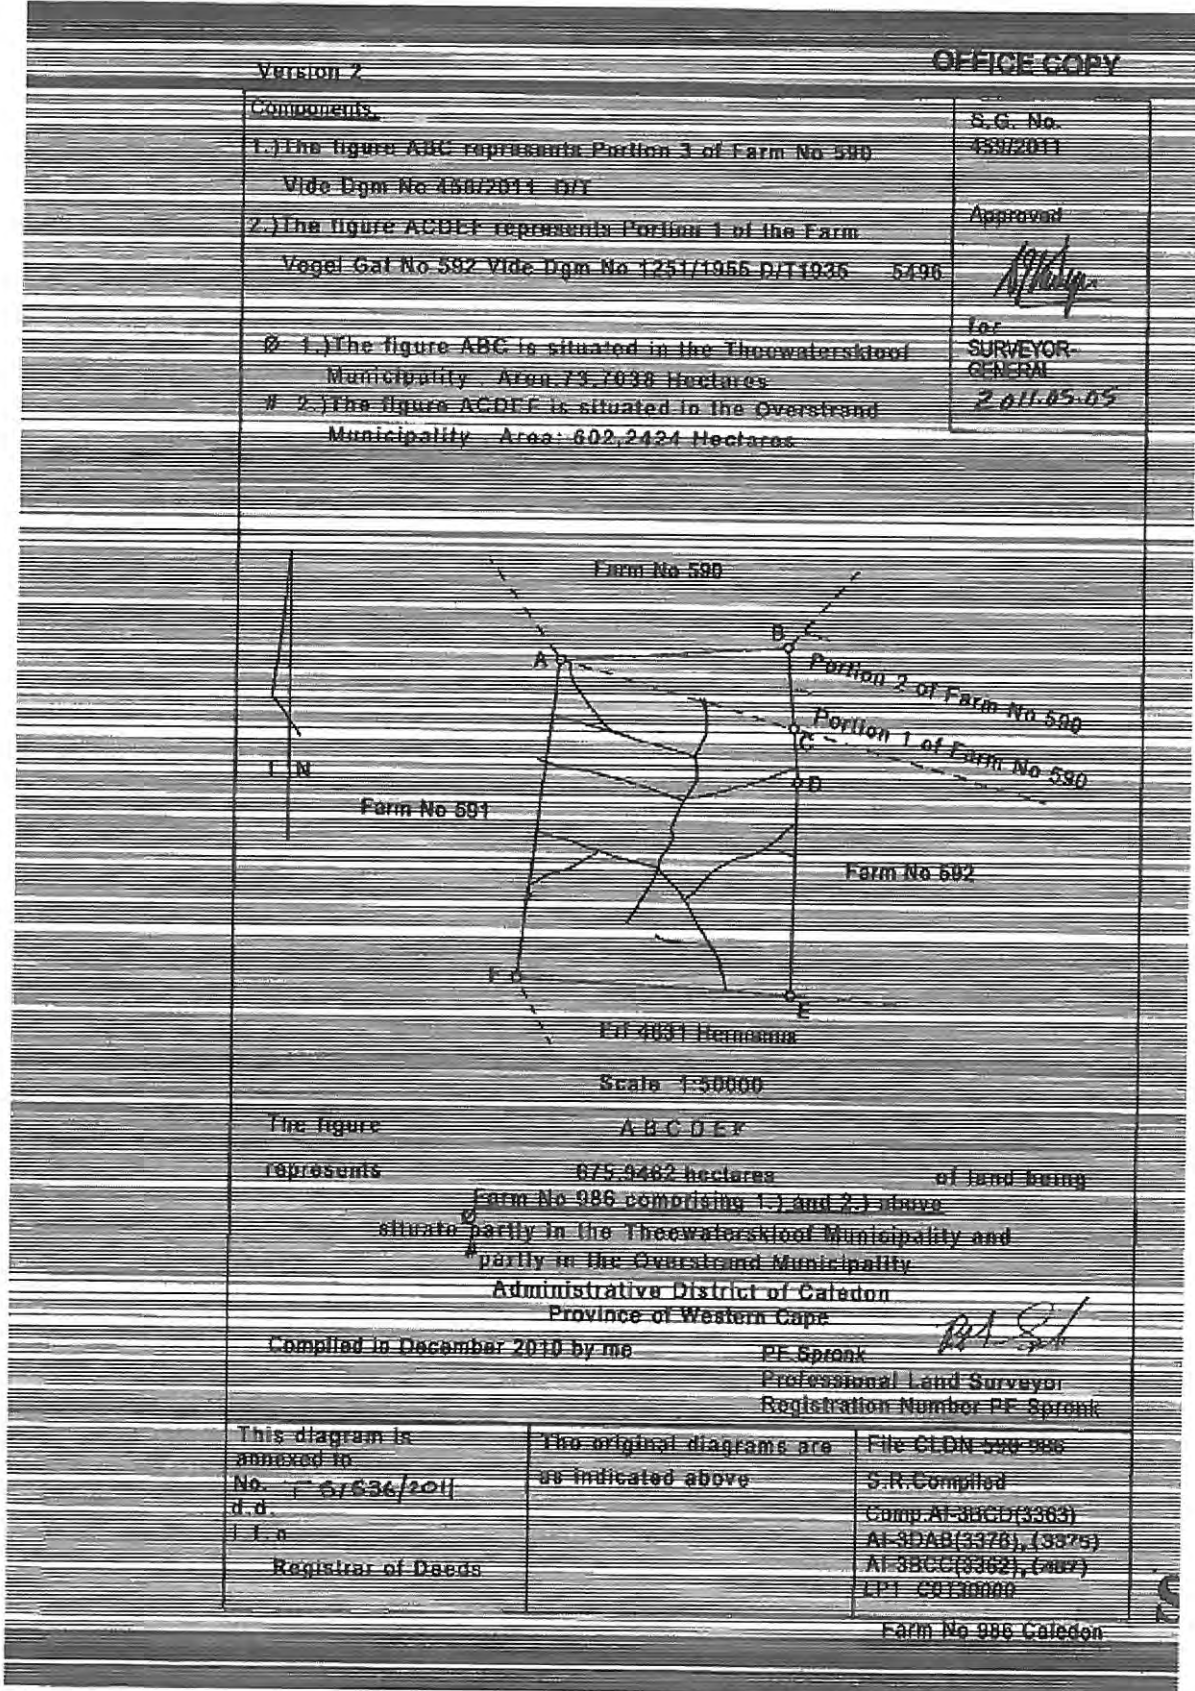 OFFICE COPY
Version 2
Components.
1.)The figure ABC represents Portion 3 of Farm No 590
Vide Dgm No 458/2011 D/T
2.)The figure ACDEF represents Portion 1 of the Farm
Vogel Gat No 592 Vide Dgm No 1251/1955 D/T1935 5496
Ø 1.)The figure ABC is situated in the Theewaterskloof
Municipality Area:73,7038 Hectares
# 2.)The figure ACDEF is situated in the Overstrand
Municipality Area: 602,2424 Hectares
S.G. No.
459/2011
Approved
for
SURVEYOR-
GENERAL
2011.05.05
Farm No 590
B
A
Portion 2 of Farm No 590
Portion 1 of Farm No 590
C
D
N
Farm No 591
Farm No 592
F
E
Erf 4831 Hermanus
Scale 1:50000
The figure A B C D E F
represents 675,9462 hectares of land being
Farm No 986 comprising 1.) and 2.) above
situate Ø partly in the Theewaterskloof Municipality and
# partly in the Overstrand Municipality
Administrative District of Caledon
Province of Western Cape
Compiled in December 2010 by me PF Spronk
Professional Land Surveyor
Registration Number PF Spronk
This diagram is
annexed to
No. T 61636/2011
d.d.
i.f.o
Registrar of Deeds
The original diagrams are
as indicated above
File CLDN 590-986
S.R.Compiled
Comp.AI-3BCD(3363)
AI-3DAB(3376),(3375)
AI-3BCC(3362),(487)
LPI C0130000
Farm No 986 Caledon